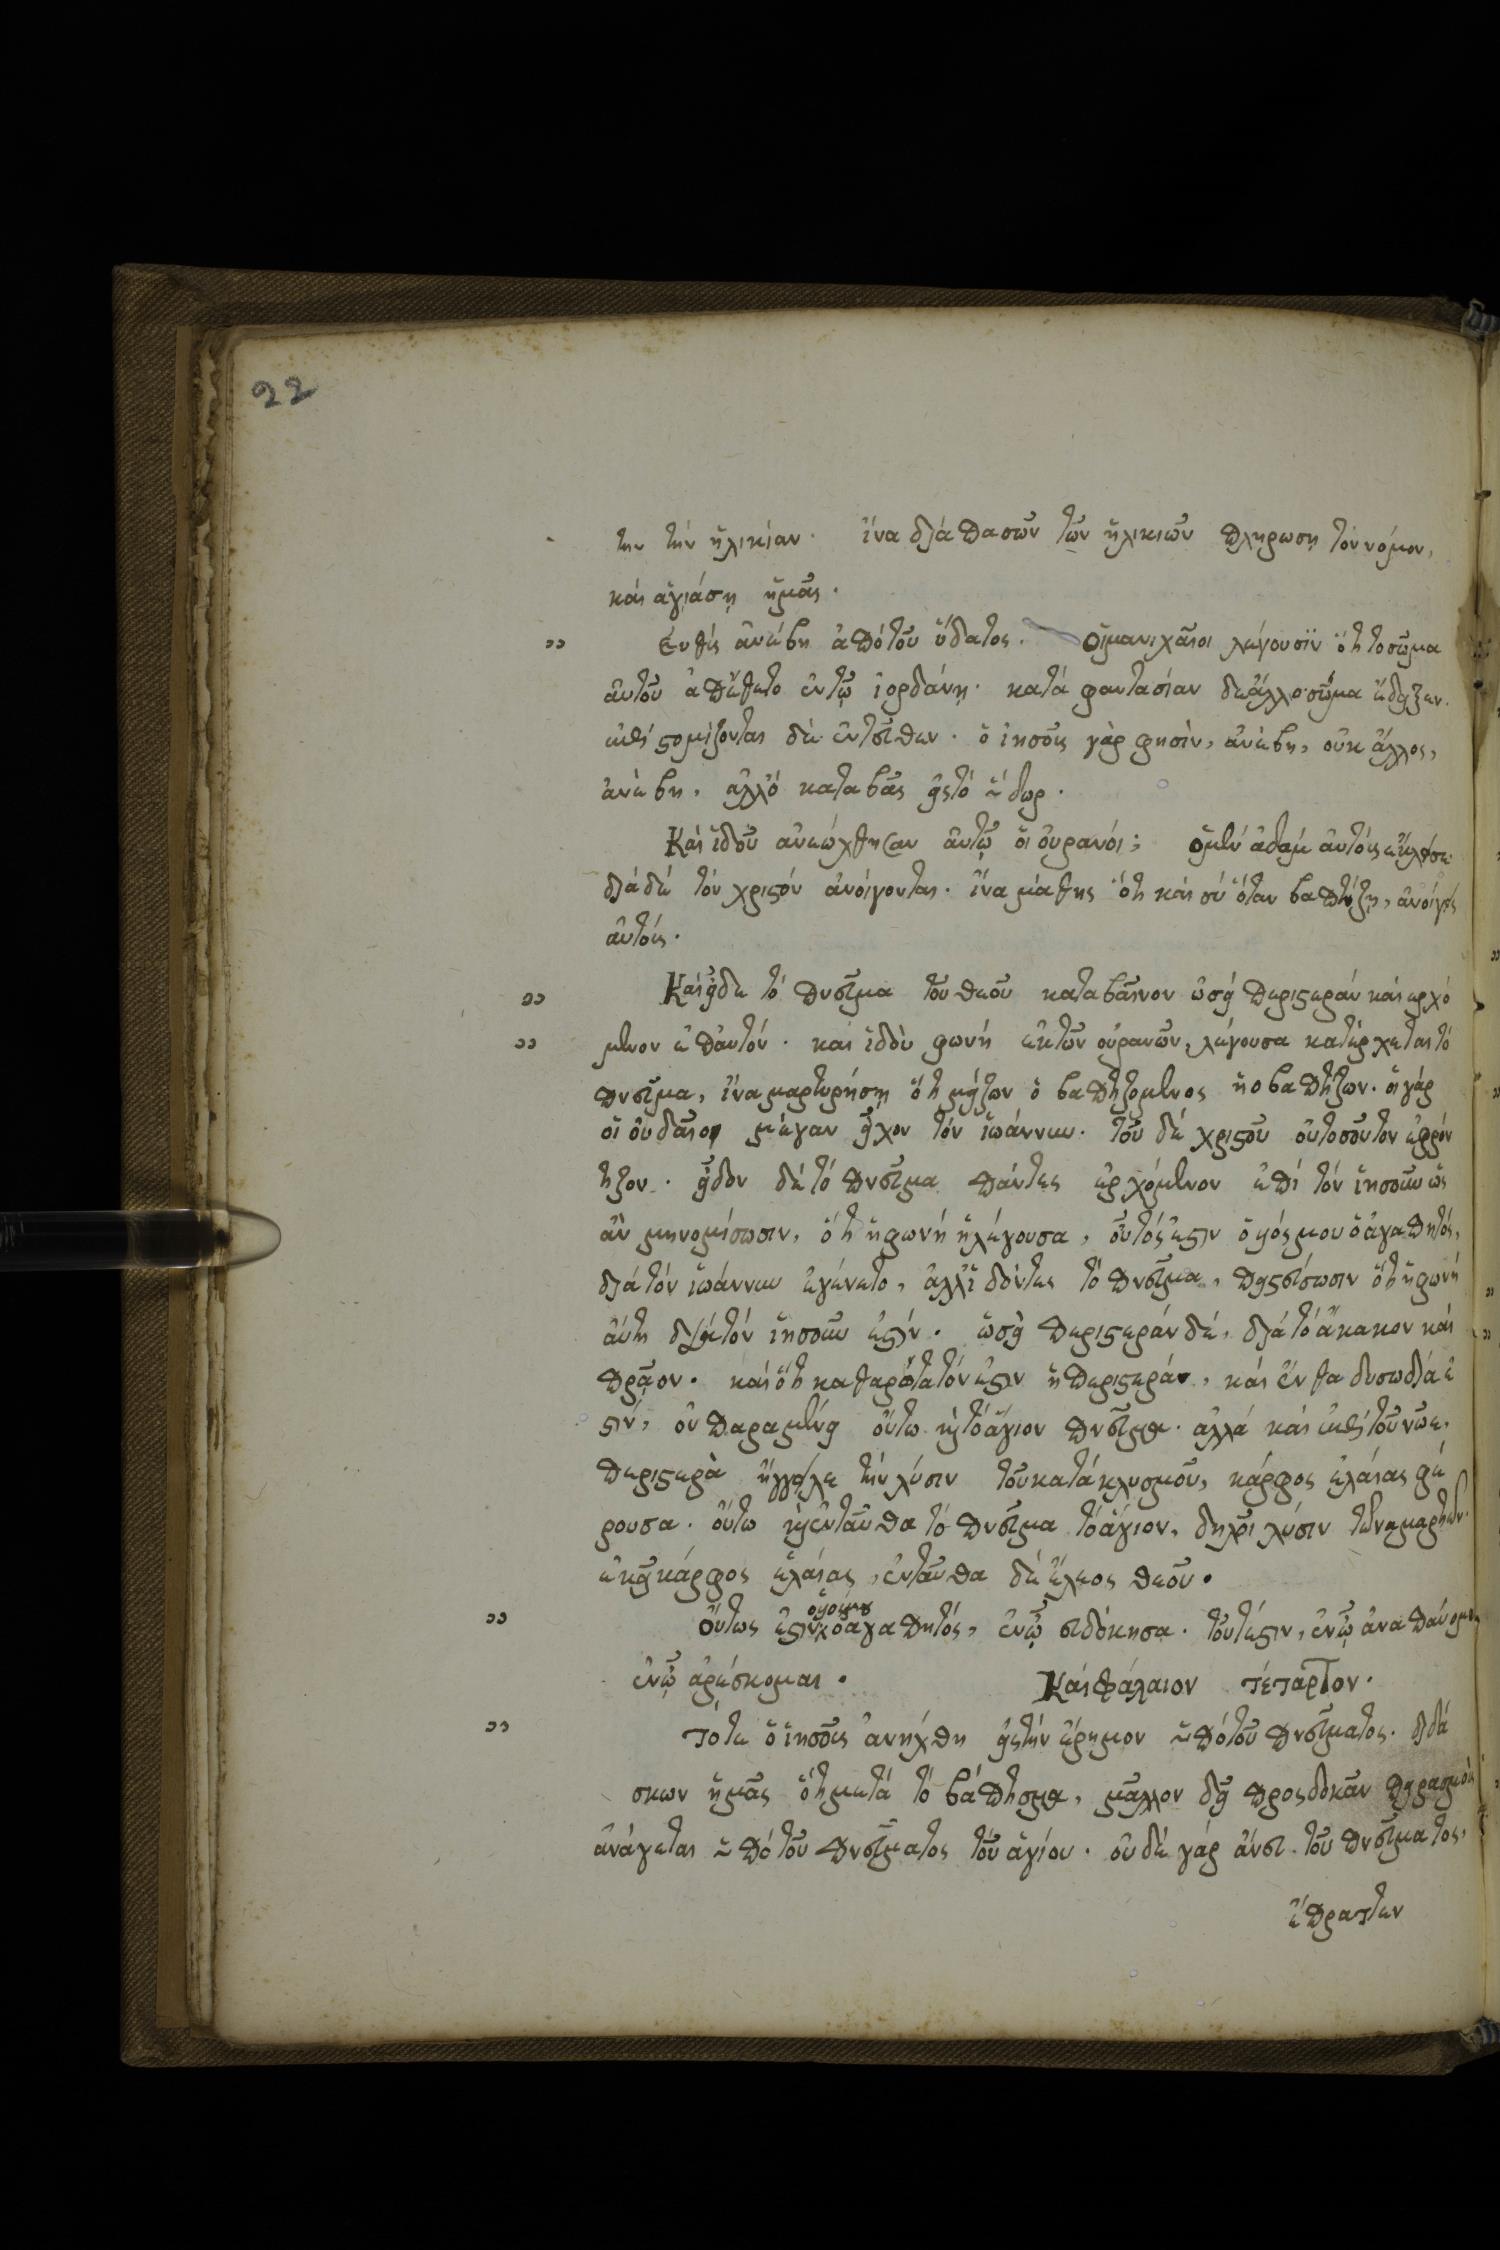 22
την τήν ἥλικίαν. ἵνα διά πασῶν τῶν ἥλικιῶν πληρωση τόν νόμον,
κάι ἁγιάση ἥμᾶς.
Ευθύς ἀνέβη ἀπό τοῦ ὕδατος. Οἵ μανιχᾶιοι λέγουσϊν ὅτι το σῶμα
ἀυτοῦ ἀπέθετο ἐν τῶ ἰορδάνη. κατά φαντασίαν δε ἄλλο σῶμα ἔδειξεν.
δέ ἐντεῦθεν. ὅ ἰησοῦς γάρ φησὶν, ἀνέβη, οὐκ ἄλλος,
ἀνέβη, ἀλλ' ὁ καταβάς εἰς τό ὕδωρ.
Κάι ἰδού ἀνεώχθησαν ἀυτῶ ὅι ὀυρανόι; ὅ μέν ἀδάμ ἀυτόυς ἔκλεισε
διά δέ τόν χριστόν ἀνόιγονται. ἵνα μάθης ὅτι κάι σύ ὅταν βαπτίζη, ἀνόιγεις
ἀυτόυς.
Κάι εἶδε τό πνεῦμα τοῦ θεοῦ καταβᾶινον ὡσεί περιστεράν κάι ερχό
μενον ἐπ' ἀυτόν. κάι ἰδὸυ φωνή ἐκ τῶν οὐρανῶν, λέγουσα κατέρχεται τό
πνεῦμα, ἵνα μαρτυρήση ὅτι μείζων ὁ βαπτιζομενος ἢ ο βαπτίζων. ὅι γάρ
ὅι ὀυδᾶιοι μέγαν εἶχον τόν ἰωάννην. τοῦ δέ χριστοῦ οὐ τοσοῦτον ἐφρόν
τιζον. εἶδον δέ τό πνεῦμα πάντες ἐρχόμενον ἐπί τόν ἰησοῦν ὡς
ἄν μη νομίσωσιν, ὅτι ἡ φωνή ἡ λέγουσα, οὗτός ἐστιν ὁ υἱός μου ὁ ἀγαπητός,
διά τόν ἰωάννην ἐγένετο, ἀλλ' ἰδόντες τό πνεῦμα, πιστεύσωσιν ὅτι ἡ φωνή
ἀύτη διά τόν ἰησοῦν ἐστίν. ὡσεί περιστεράν δέ, διά τό ἄκακον κάι
πρᾶον. κάι ὅτι καθαρώτατόν ἐστιν ἡ περιστερά, κάι ἔνθα δυσωδία ἐ
στιν, οὐ παραμένει οὕτω καί τό ἅγιον πνεῦμα. ἀλλά κάι ἐπί τοῦ νῶε,
περιστερὰ ἤγγειλε τήν λύσιν τοῦ κατάκλυσμοῦ, κάρφος ἐλάιας φέ
ρουσα. οὕτω καί ἐνταῦθα τό πνεῦμα τό ἅγιον, δηλοῖ λύσιν τῶν αμαρτιῶν.
ἐκεῖ κάρφος ἐλάιας, ἐνταῦθα δέ ἔλεος θεοῦ.
Οὕτως ἐστιν ὁ υἱός μου ὁ αγαπητός, ἐν ᾧ ευδόκησα. τουτέστιν, ἐν ᾧ ἀναπάυομαι,
ἐν ᾧ ἀρέσκομαι. Κάιφάλαιον τέταρτον.
Τότε ὁ ἰησοῦς ἀνήχθη εἰς τήν ἔρημον ὑπό τοῦ πνεῦματος. διδά
σκων ἡμᾶς ὅτι μετά τό βάπτισμα, μᾶλλον δεῖ προςδοκᾶν πειρασμόυς
ἀνάγεται ὑπό τοῦ πνεῦματος τοῦ ἁγίου. οὐδέ γάρ ἄνευ τοῦ πνεῦματος,
ἔπραττεν